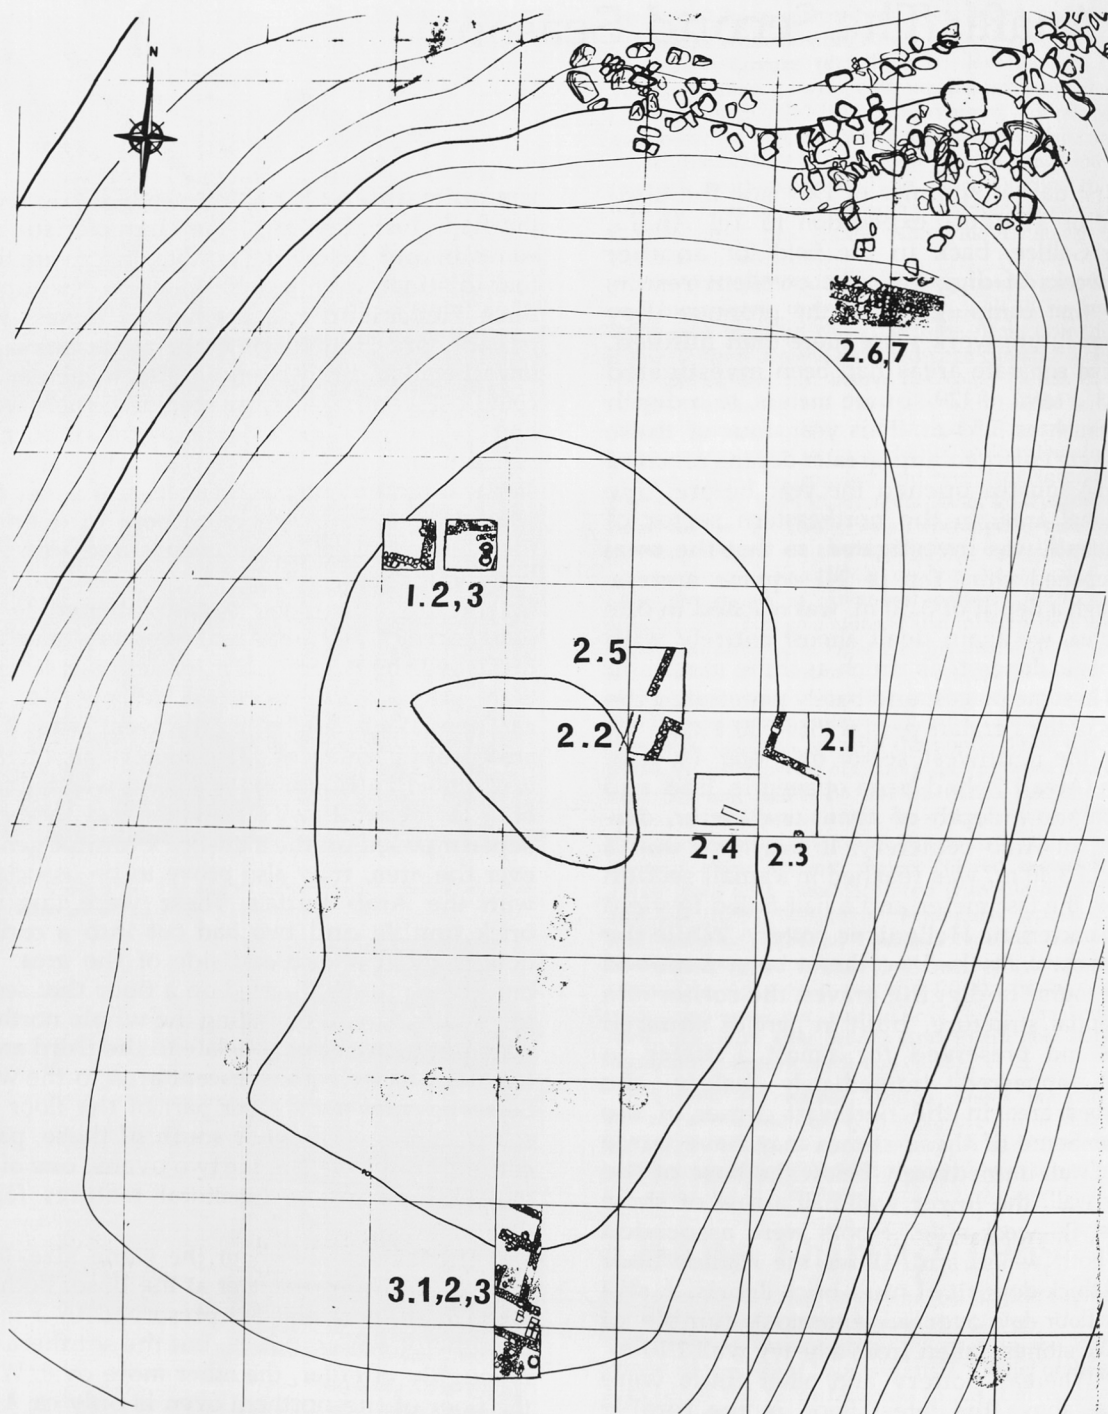 N
2.6,7
1.2,3
2.5
2.2
2.1
2.4
2.3
3.1,2,3